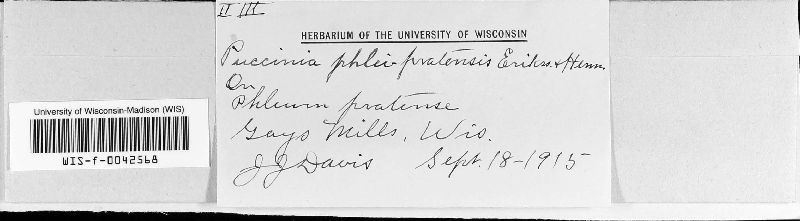 II III
HERBARIUM OF THE UNIVERSITY OF WISCONSIN
Puccinia phlei-pratensis Erikss. & Henn.
On
Phleum pratense
Gays Mills, Wis.
J J Davis Sept. 18-1915
University of Wisconsin-Madison (WIS)
WIS-f-0042568